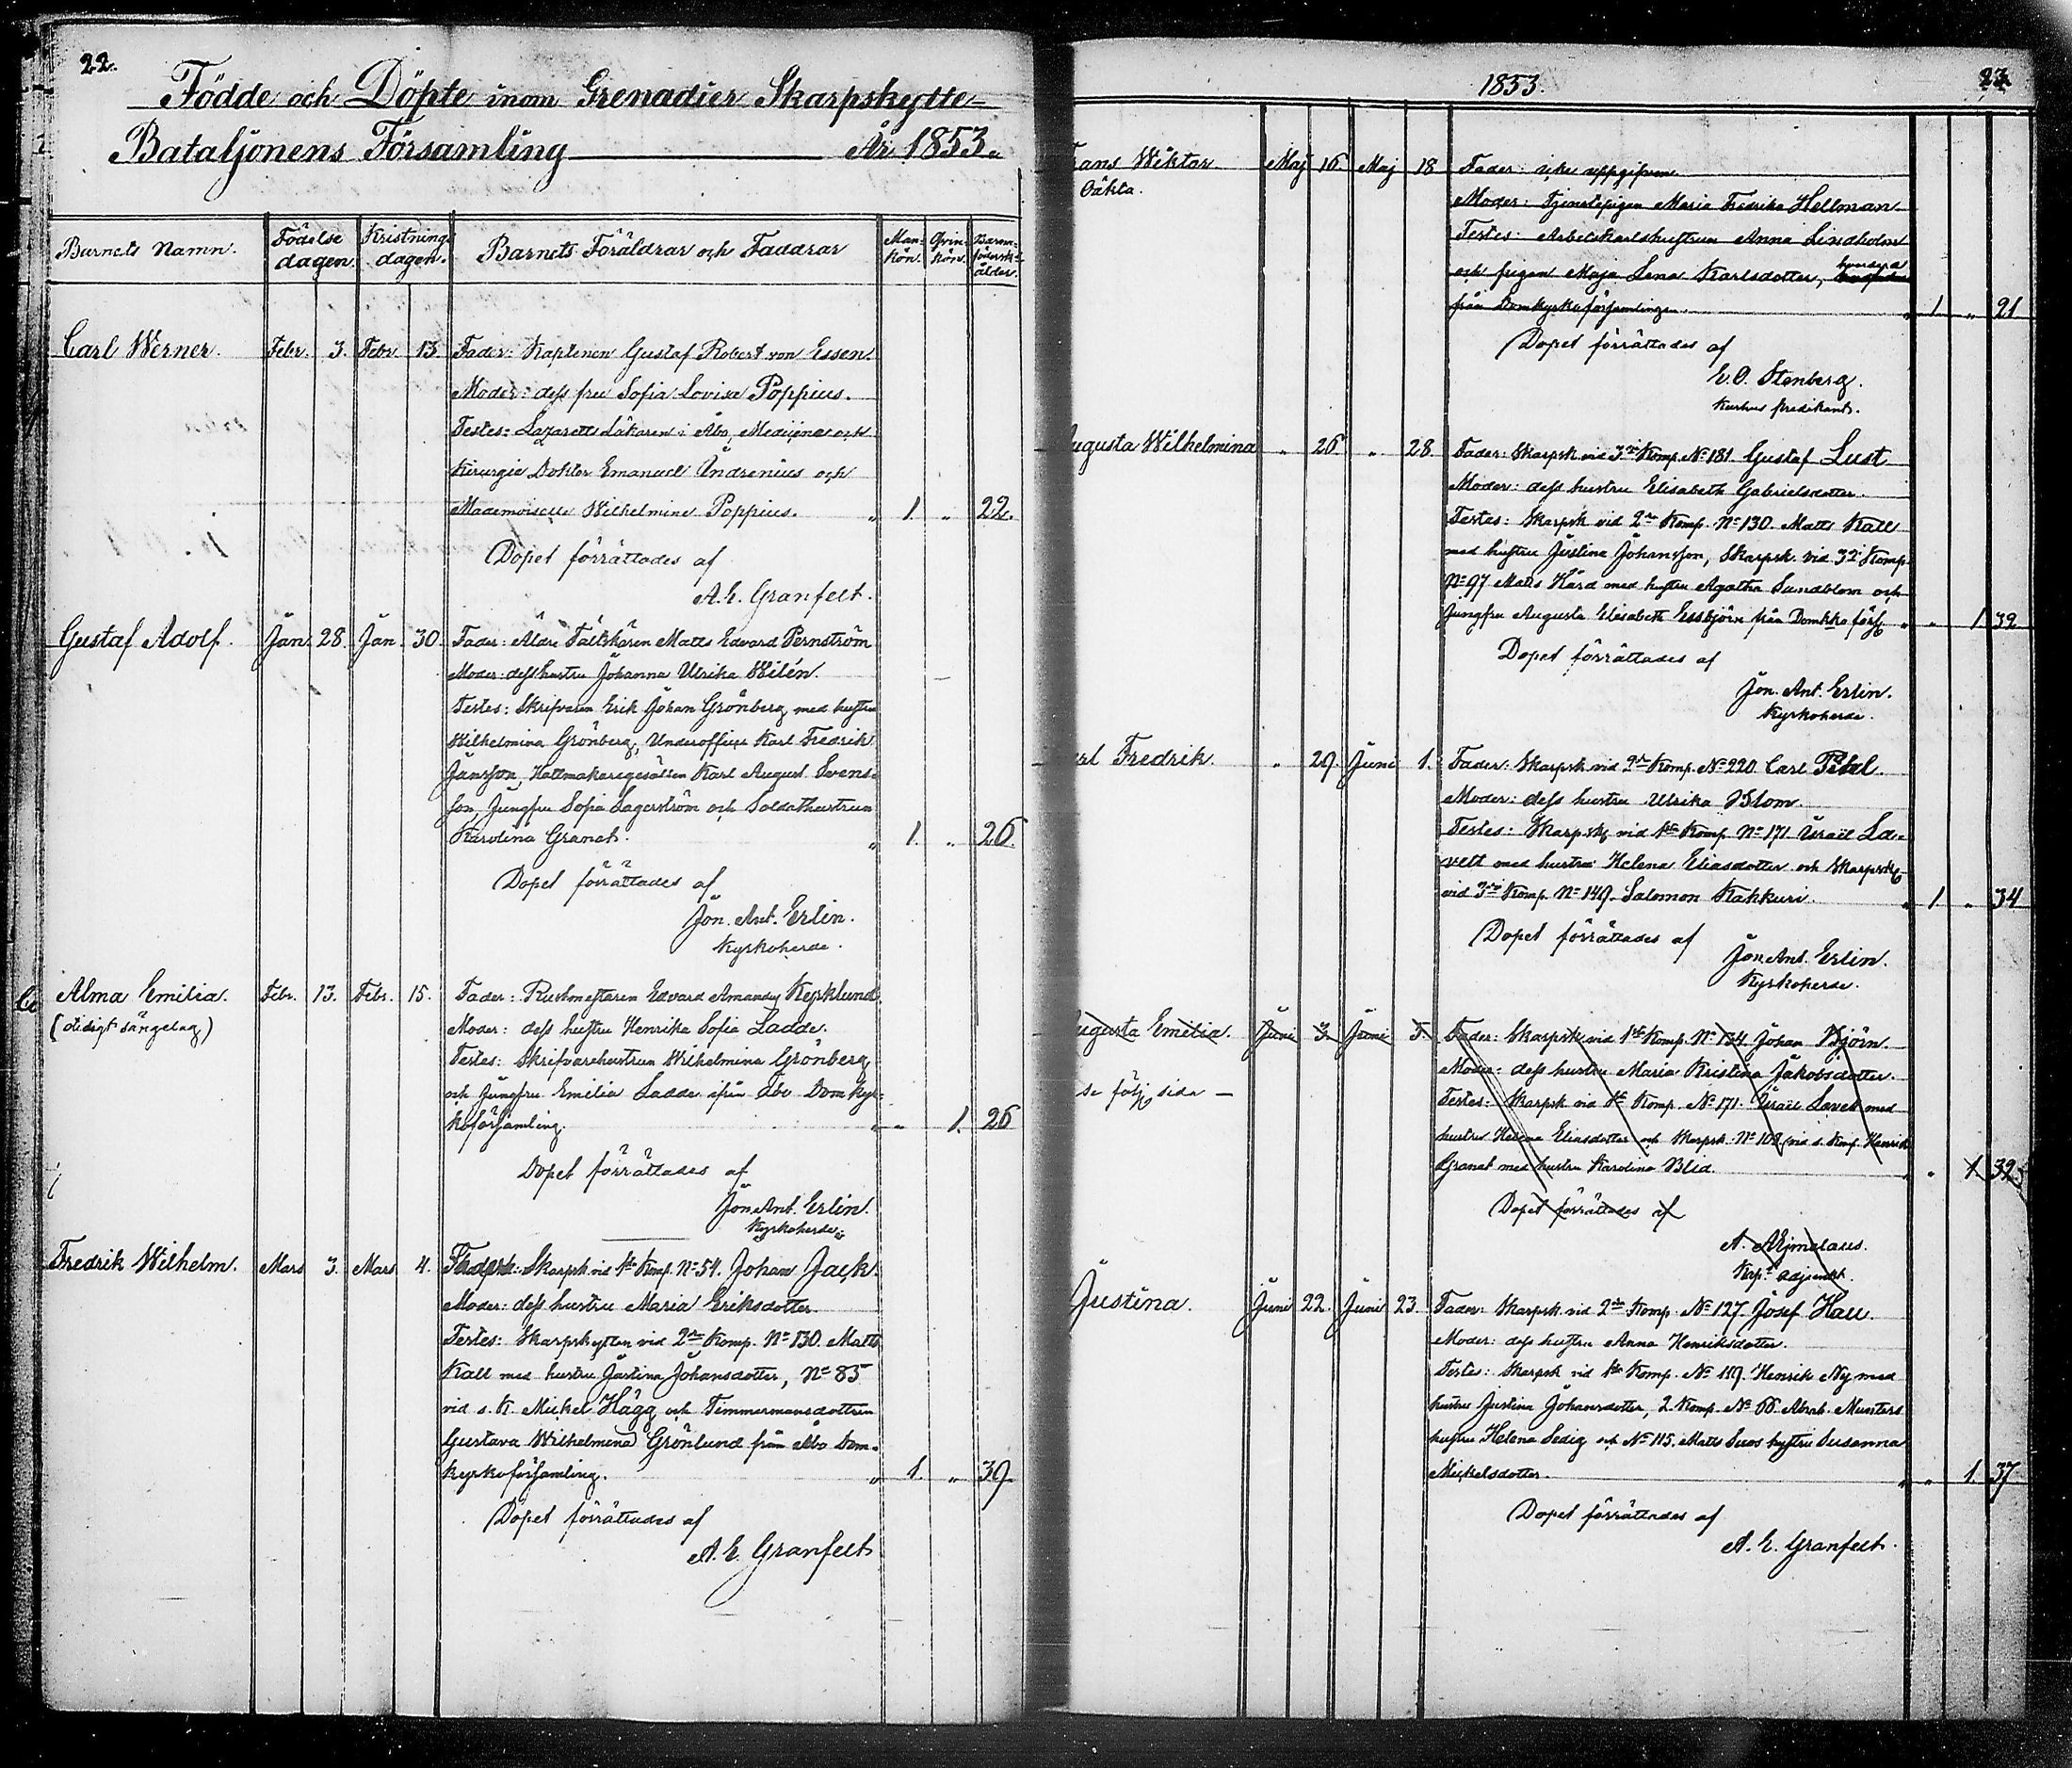 22.
Födde och Döpte inom Grenadier Skarpskytte-
Bataljonens Församling År 1853.
Barnets Namn. Födelse dagen. Kristnings dagen. Barnets Föräldrar och Faddrar Man-kön. Qvin-kön. Barna-födersk-ålder.
Carl Werner. Febr. 3. Febr. 13 Fader: Kaptenen Gustaf Robert von Essen.
Moder: dess fru Sofia Lovisa Poppius.
Testes: Lazaretts Läkaren i Åbo, Medicine och
Kirurgie Doktor Emanuel Indrenius och
Mademoiselle Wilhelmine Poppius. „ 1. „ 22.
Dopet förrättades af
A. E. Granfelt.
Gustaf Adolf. Jan. 28. Jan. 30. Fader: Äldre Fältskären Matts Edvard Pernström
Moder: dess hustru Johanna Ulrika Wilén.
Testes: Skrifvaren Erik Johan Grönberg med hustru
Wilhelmina Grönberg, Underofficer Karl Fredrik
Jansson, Hattmakaregesällen Karl August Svens-
son, Jungfru Sofia Lagerström och Soldathustrun
Karolina Granat. „ 1. „ 26.
Dopet förrättades af
Jon. Ant. Erlin.
Kyrkoherde.
Alma Emilia. Febr. 13. Febr. 15. Fader: Rustmästaren Edvard Amandus Kyrklund.
(otidigt sängelag) Moder: dess hustru Henrika Sofia Ladde.
Testes: Skrifvarehustrun Wilhelmina Grönberg
och Jungfru Emilia Ladde ifrån Åbo Domkyr-
koförsamling. „ „ 1. 26
Dopet förrättades af
Jon. Ant. Erlin.
Kyrkoherde.
Fredrik Wilhelm. Mars 3. Mars 4. Fader: Skarpsk vid 1sta Komp. No 54. Johan Jack.
Moder: dess hustru Maria Eriksdotter.
Testes: Skarpskytten vid 2dra Komp. No 130. Matts
Kall med hustru Justina Johansdotter, No 85
vid s. K. Mickel Hägg och Timmermansdottren
Gustava Wilhelmina Grönlund från Åbo Dom-
kyrkoförsamling. „ 1. „ 39.
Dopet förrättades af
A. E. Granfelt
1853. 23.
Frans Wiktor Maj 16. Maj 18 Fader: icke uppgifven
Oäkta. Moder: Tjenstepigan Maria Fredrika Hellman
Testes: Arbetskarlshustrun Anna Lindholm
och pigan Maja Lena Karlsdotter,
från Domkyrkoförsamlingen. „ 1 „ 21
Dopet förrättades af
E. O. Stenberg.
Kurhus predikant.
Augusta Wilhelmina „ 26 „ 28. Fader: Skarpsk vid 3dje Komp. No 181. Gustaf Lust
Moder: dess hustru Elisabeth Gabrielsdotter.
Testes: Skarpsk vid 2dra Komp. No 130. Matts Kall
med hustru Justina Johansson, Skarpsk. vid 3dje Komp.
No 97 Matts Hård med hustru Agatha Sundblom och
Jungfru Augusta Elisabeth Essbjörn från Domkko förs. „ „ 1 32
Dopet förrättades af
Jon. Ant. Erlin.
Kyrkoherde.
Carl Fredrik. „ 29. Juni 1. Fader: Skarpsk vid 2dra Komp. No 220. Carl
Moder: dess hustru Ulrika Blom.
Testes: Skarpsk vid 1sta Komp. No 171 Israël La-
vett med hustru Helena Eliasdotter och Skarpsk
vid 3dje Komp. No 149. Salomon Kakkuri. „ 1. „ 34
Dopet förrättades af
Jon. Ant. Erlin.
Kyrkoherde.
Augusta Emilia. Juni 3. Juni 5. Fader: Skarpsk vid 1sta Komp. No 134 Johan Björn.
Moder: dess hustru Maria Kristina Jakobsdotter.
se följ. sida — Testes: Skarpsk vid 1sta Komp. No 171. Israël Lavett med
hustru Helena Eliasdotter och Skarpsk. No 109 vid s. Komp. Henrik
Granat med hustru Karolina Blid. „ 1. 32.
Dopet förrättades af
Justina. Juni 22. Juni 23. Fader: Skarpsk vid 2dra Komp. No 127 Josef Hau.
Moder: dess hustru Anna Henriksdotter.
Testes: Skarpsk vid 1sta Komp. No 119. Henrik Ny med
hustru Justina Johansdotter, 2. Komp. No 66. Abrah. Munters
hustru Helena Sedig och No 115. Matts hustru Susanna
Mickelsdotter. „ „ 1. 37
Dopet förrättades af
A. E. Granfelt.